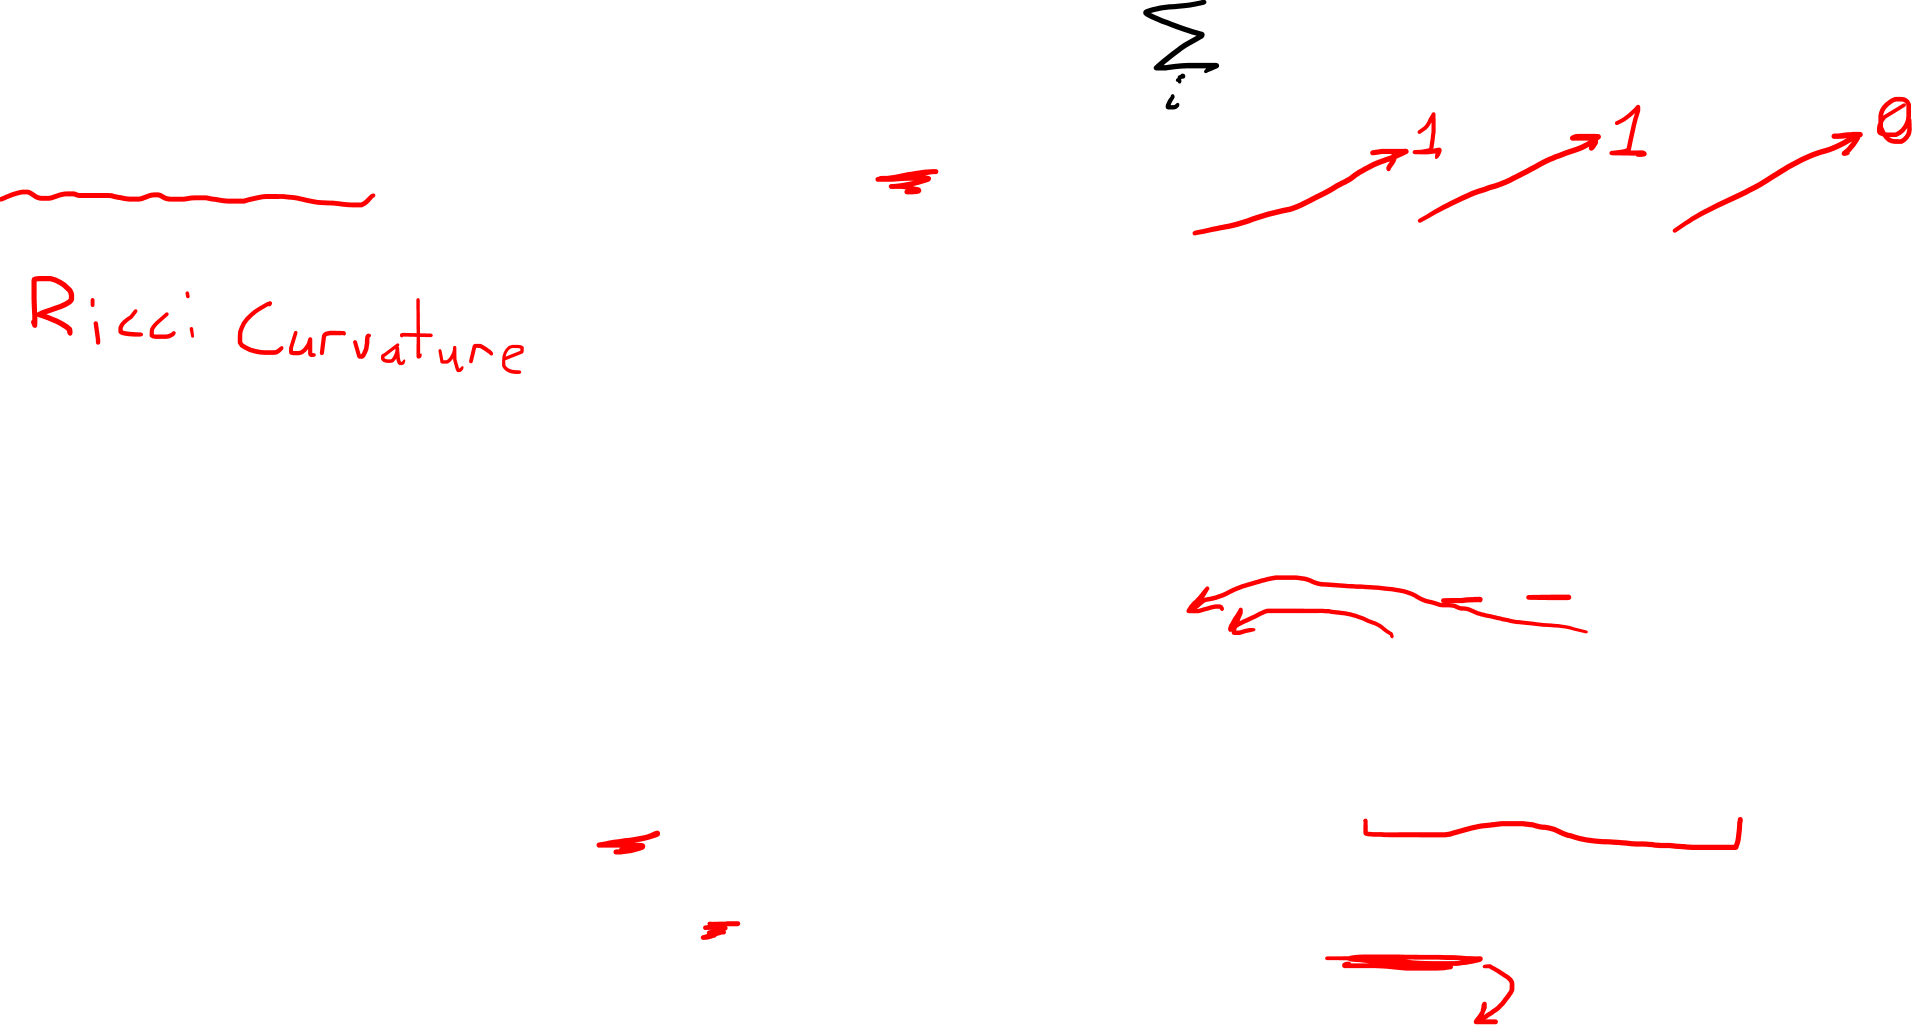 ∑
i
1 1 0
Ricci Curvature